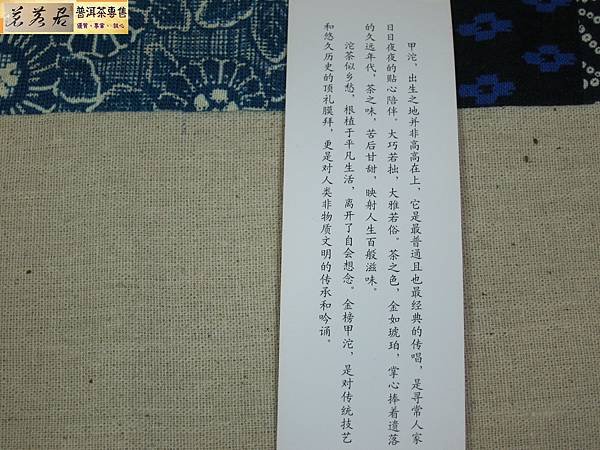 茗荖居
普洱茶專售
優質·專家·誠心
甲沱，出生之地并非高高在上，它是最普通且也最经典的传唱，是寻常人家
日日夜夜的贴心陪伴。大巧若拙，大雅若俗。茶之色，金如琥珀，掌心捧着遗落
的久远年代，茶之味，苦后甘甜，映射人生百般滋味。
沱茶似乡愁，根植于平凡生活，离开了自会想念。金榜甲沱，是对传统技艺
和悠久历史的顶礼膜拜，更是对人类非物质文明的传承和吟诵。